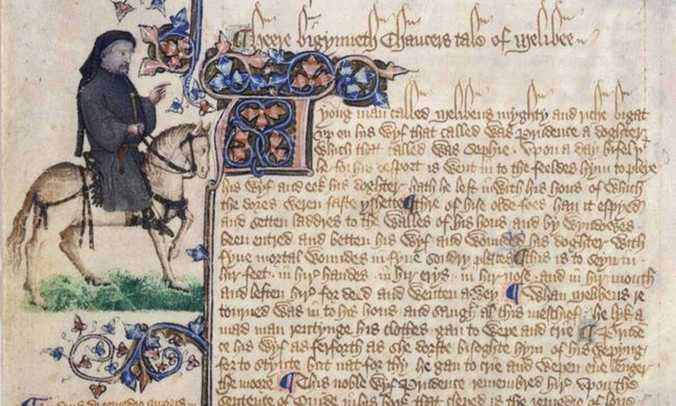 Heere bigynneth Chaucers tale of Melibee
yong man called Melibeus myghty and riche bigat
vp on his wyf that called was Prudence a doghter
which that called was Sophie vpon a day bifel
he for his desport is went in to the feeldes hym to pleye
his wyf and eek his doghter hath he left in with his hous of which
the dores weren faste yshette thre of hise olde foos han it espyed
and setten laddres to the walles of his hous and by wyndowes
been entred and betten his wyf and wounded his doghter with
fyue mortal woundes in fyue sondry places This is to seyn in
hir feet in hire handes in hir erys in hir nose and in hir mouth
and leften hire for deed and wenten awey Whan Melibeus re
tourned was in to his hous and saugh al this meschief he lyk a
mad man rentynge his clothes gan to wepe and crie Prude
ce his wyf as ferforth as she dorste bisoghte hym of his wepyng
for to stynte but nat for thy he gan to crie and wepen euer lenger
the moore This noble wyf Prudence remembred hire vpon the
sentence of Ouide in his book that cleped is the remedie of loue